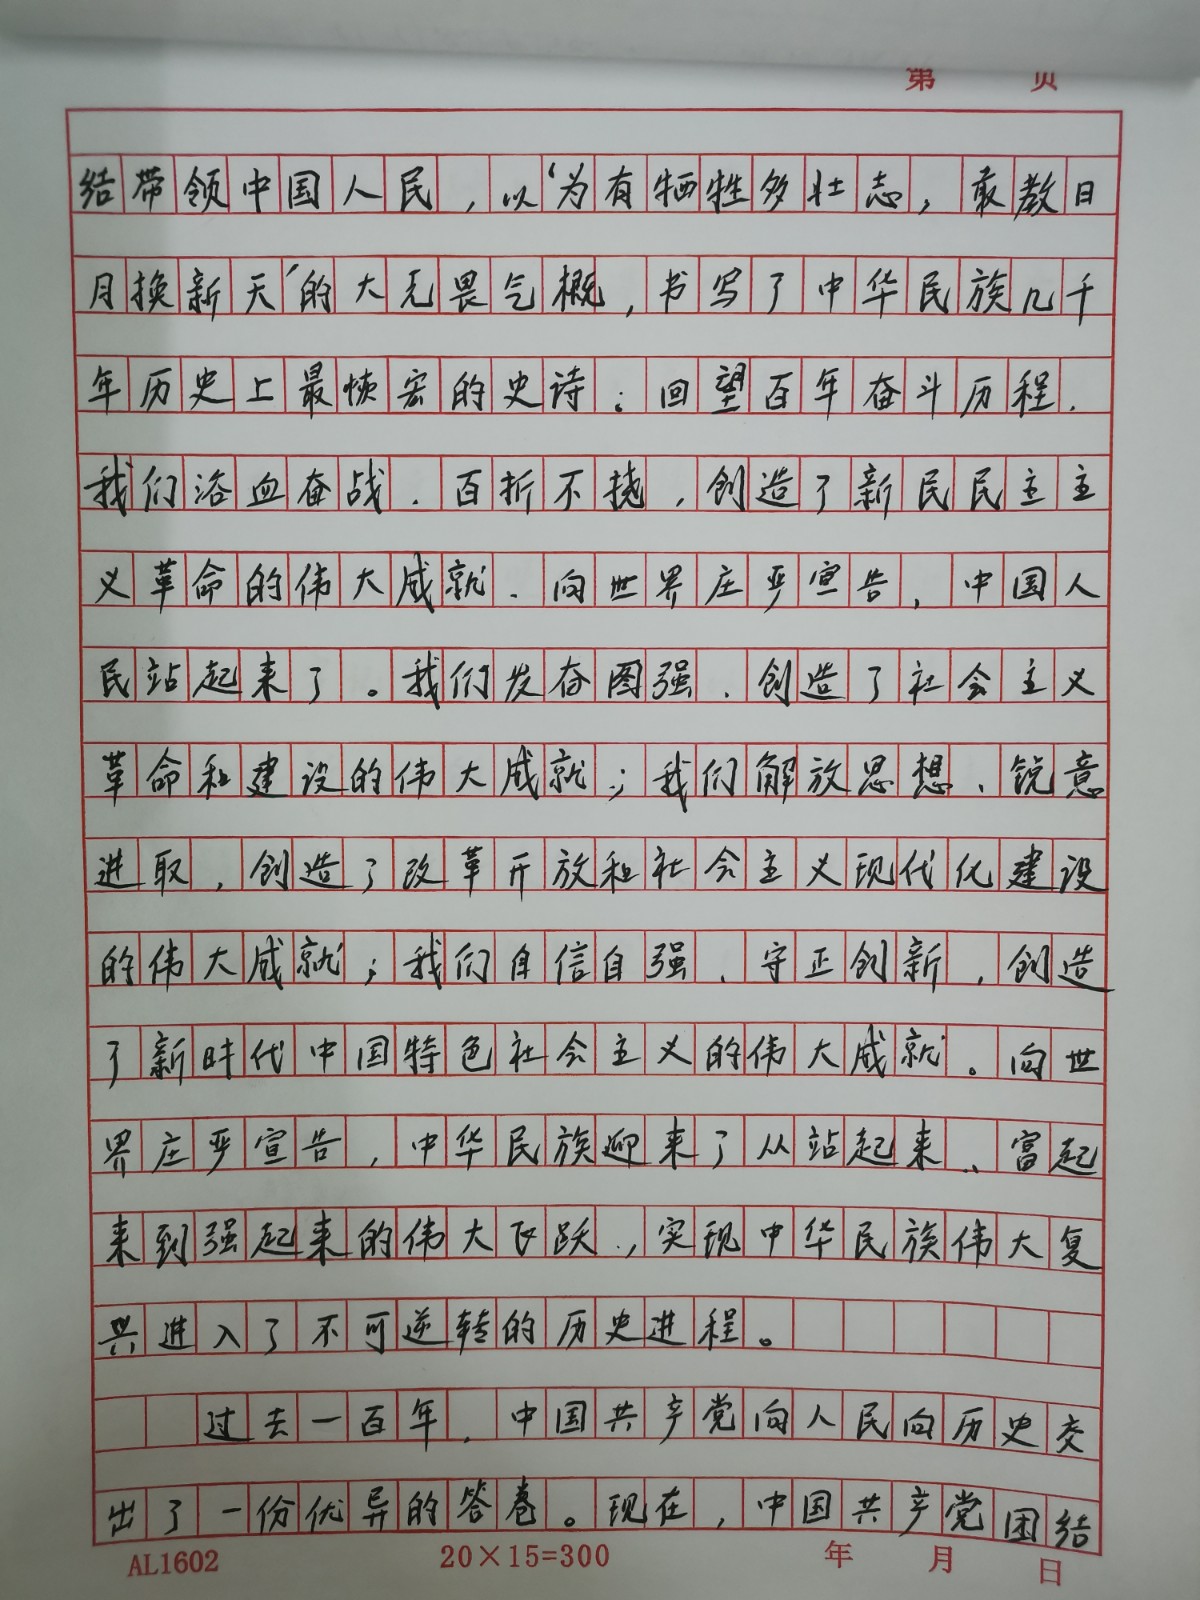 第 页
结带领中国人民，以‘为有牺牲多壮志，敢教日
月换新天’的大无畏气概，书写了中华民族几千
年历史上最恢宏的史诗；回望百年奋斗历程、
我们浴血奋战、百折不挠，创造了新民民主主
义革命的伟大成就、向世界庄严宣告，中国人
民站起来了。我们发奋图强、创造了社会主义
革命和建设的伟大成就；我们解放思想、锐意
进取，创造了改革开放和社会主义现代化建设
的伟大成就；我们自信自强、守正创新，创造
了新时代中国特色社会主义的伟大成就。向世
界庄严宣告，中华民族迎来了从站起来、富起
来到强起来的伟大飞跃，实现中华民族伟大复
兴进入了不可逆转的历史进程。
过去一百年，中国共产党向人民向历史交
出了一份优异的答卷。现在，中国共产党团结
AL1602 20×15=300 年 月 日